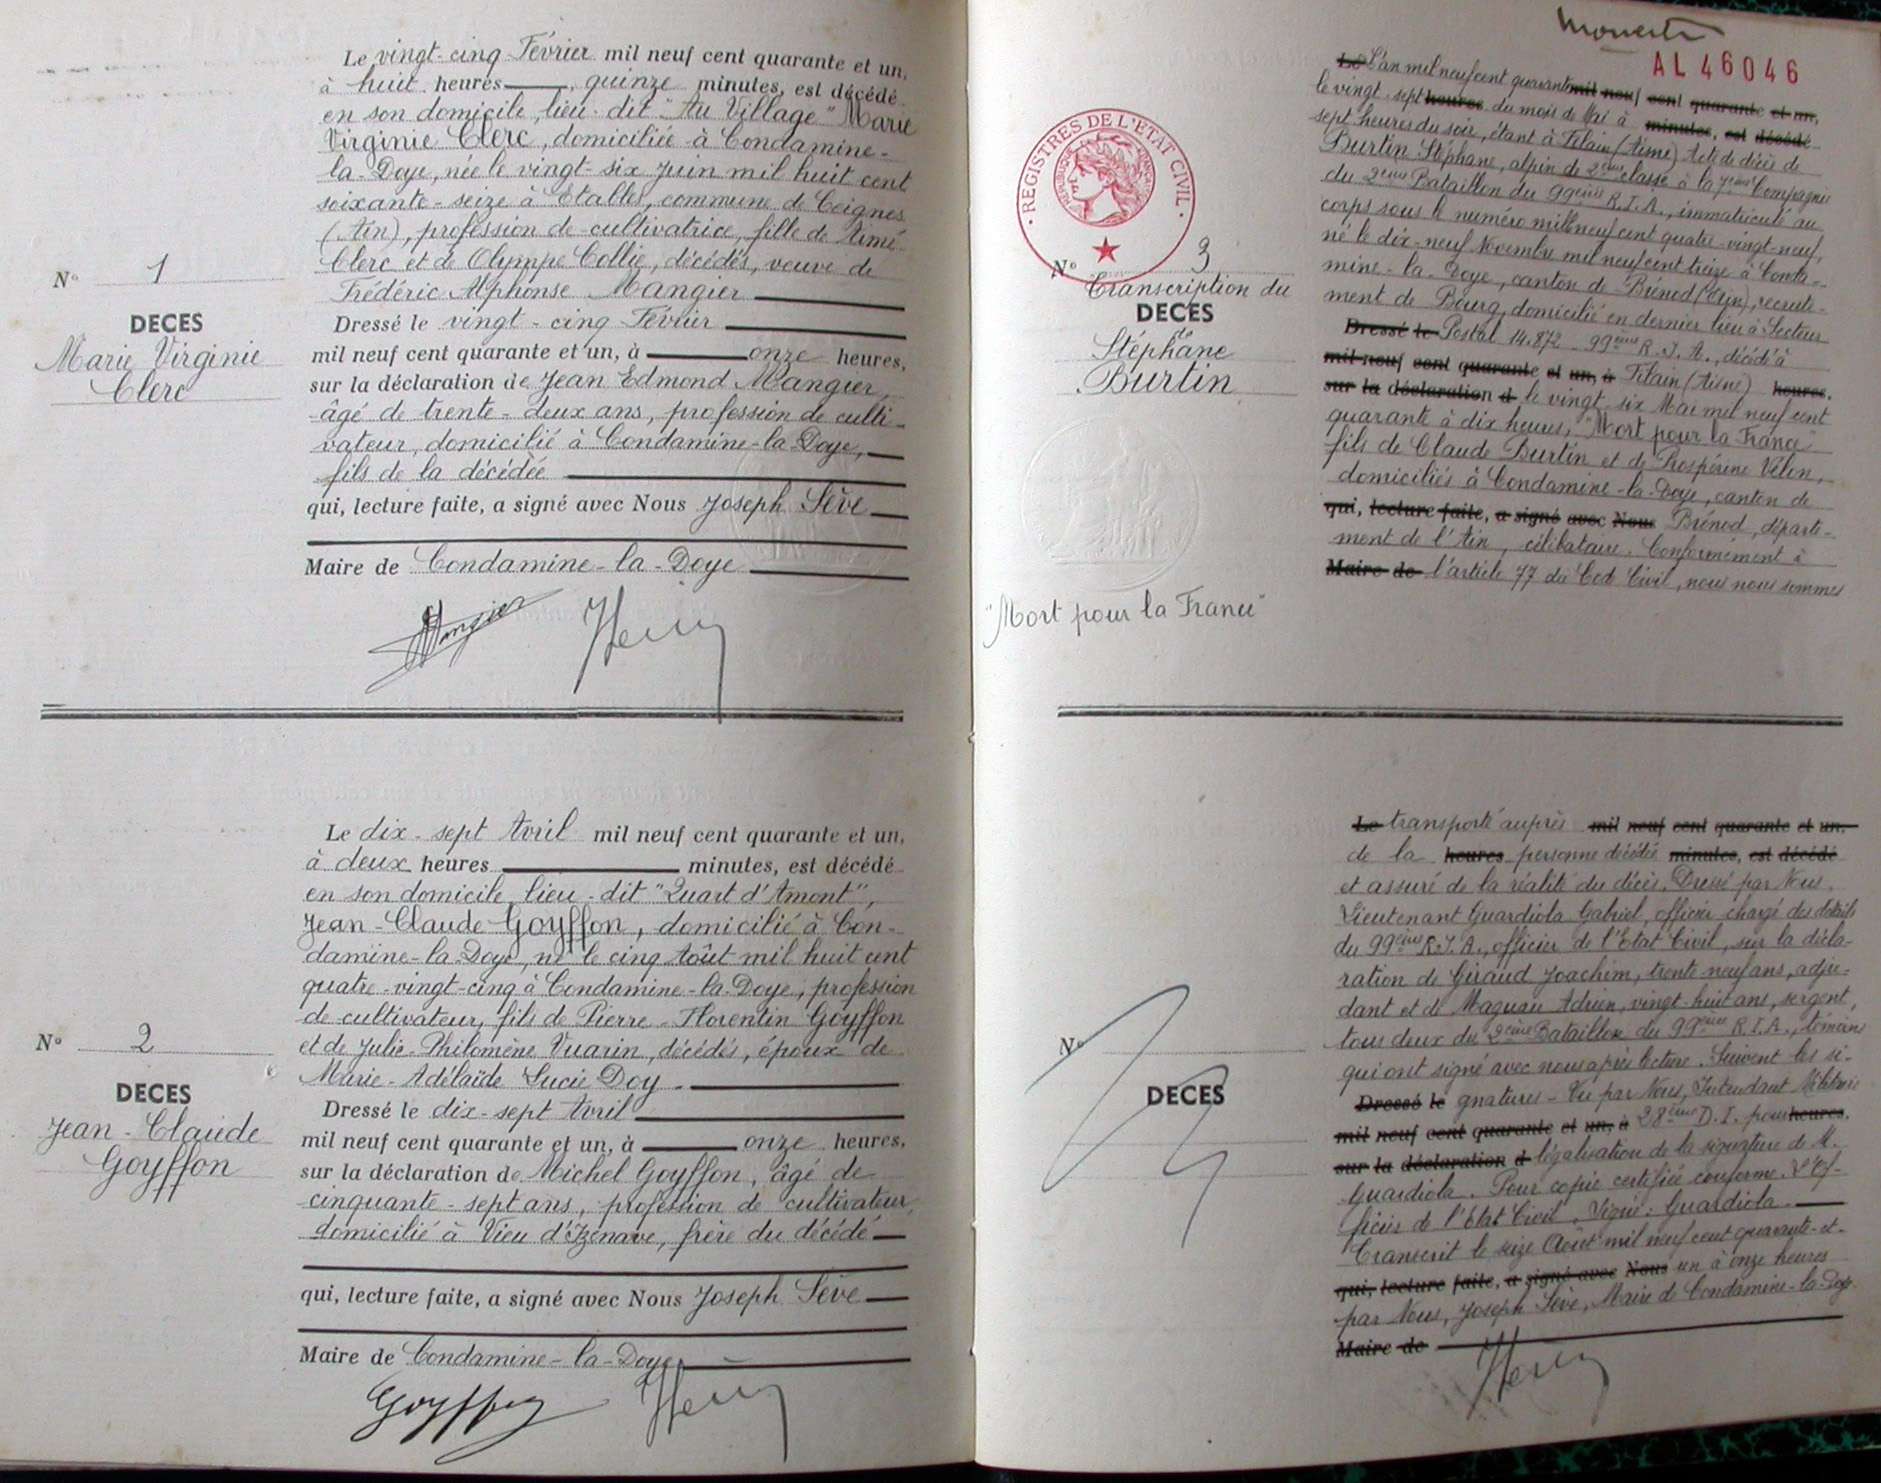 Le vingt-cinq Février mil neuf cent quarante et un,
à huit heures, quinze minutes, est décédé
en son domicile, lieu-dit "Au Village" Marie
Virginie Clerc, domiciliée à Condamine-
la-Doye, née le vingt-six Juin mil huit cent
soixante-seize à Etables, commune de Ceignes
(Ain), profession de cultivatrice, fille de Aimé
Clerc et de Olympe Collie, décédés, veuve de
Frédéric Alphonse Mangier
N° 1
DECES
Marie Virginie
Clerc
Dressé le vingt-cinq Février
mil neuf cent quarante et un, à onze heures,
sur la déclaration de Jean Edmond Mangier,
âgé de trente-deux ans, profession de culti-
vateur, domicilié à Condamine-la-Doye,
fils de la décédée
qui, lecture faite, a signé avec Nous Joseph Sève
Maire de Condamine-la-Doye
Mangier
Le dix-sept Avril mil neuf cent quarante et un,
à deux heures minutes, est décédé
en son domicile, lieu-dit "Quart d'Amont",
Jean-Claude Goyffon, domicilié à Con-
damine-la-Doye, né le cinq Août mil huit cent
quatre-vingt-cinq à Condamine-la-Doye, profession
de cultivateur, fils de Pierre-Florentin Goyffon
et de Julie-Philomène Vuarin, décédés, époux de
Marie-Adélaïde Lucie Doy
N° 2
DECES
Jean-Claude
Goyffon
Dressé le dix-sept Avril
mil neuf cent quarante et un, à onze heures,
sur la déclaration de Michel Goyffon, âgé de
cinquante-sept ans, profession de cultivateur,
domicilié à Vieu d'Izenave, frère du décédé
qui, lecture faite, a signé avec Nous Joseph Sève
Maire de Condamine-la-Doye
Goyffon
AL 46046
REGISTRES DE L'ETAT CIVIL
N° 3
Transcription du
DECES
de
Stéphane
Burtin
"Mort pour la France"
Le L'an mil neuf cent quarante mil neuf cent quarante et un,
le vingt-sept heures du mois de Mai à minutes, est décédé
sept heures du soir, étant à Filain (Aisne) Acte de décès de
Burtin Stéphane, alpin de 2ème classe à la 7ème Compagnie
du 2ème Bataillon du 99ème R.I.A., immatriculé au
corps sous le numéro mille neuf cent quatre-vingt-neuf,
né le dix-neuf Novembre mil neuf cent treize à Conda-
mine-la-Doye, canton de Brénod (Ain), recrute-
ment de Bourg, domicilié en dernier lieu à Secteur
Dressé le Postal 14.872 - 99ème R.I.A., décédé à
mil neuf cent quarante et un, à Filain (Aisne) heures,
sur la déclaration d le vingt six Mai mil neuf cent
quarante à dix heures, "Mort pour la France"
fils de Claude Burtin et de Prospérine Velen,
domiciliés à Condamine-la-Doye, canton de
qui, lecture faite, a signé avec Nous Brénod, départe-
ment de l'Ain, célibataire. Conformément à
Maire de l'article 77 du Cod Civil, nous nous sommes
Le transporté auprès mil neuf cent quarante et un,
de la heures personne décédée minutes, est décédé
et assuré de la réalité du décès. Dressé par Nous,
Lieutenant Guardiola Gabriel, officier chargé des détails
du 99ème R.I.A., officier de l'Etat Civil, sur la décla-
ration de Giraud Joachim, trente neuf ans, adju-
dant et de Maguau Adrien, vingt-huit ans, sergent,
tous deux du 2ème Bataillon du 99ème R.I.A., témoins
qui ont signé avec nous après lecture. Suivent les si-
N°
DECES
Dressé le gnatures - Vu par Nous, Intendant Militaire
mil neuf cent quarante et un, à 28ème D.I. pour heures,
sur la déclaration d légalisation de la signature de M.
Guardiola. Pour copie certifiée conforme. L'Of-
ficier de l'Etat Civil, Signé: Guardiola.
Transcrit le seize Août mil neuf cent quarante-et-
qui, lecture faite, a signé avec Nous un à onze heures
par Nous, Joseph Sève, Maire de Condamine-la-Doye
Maire de